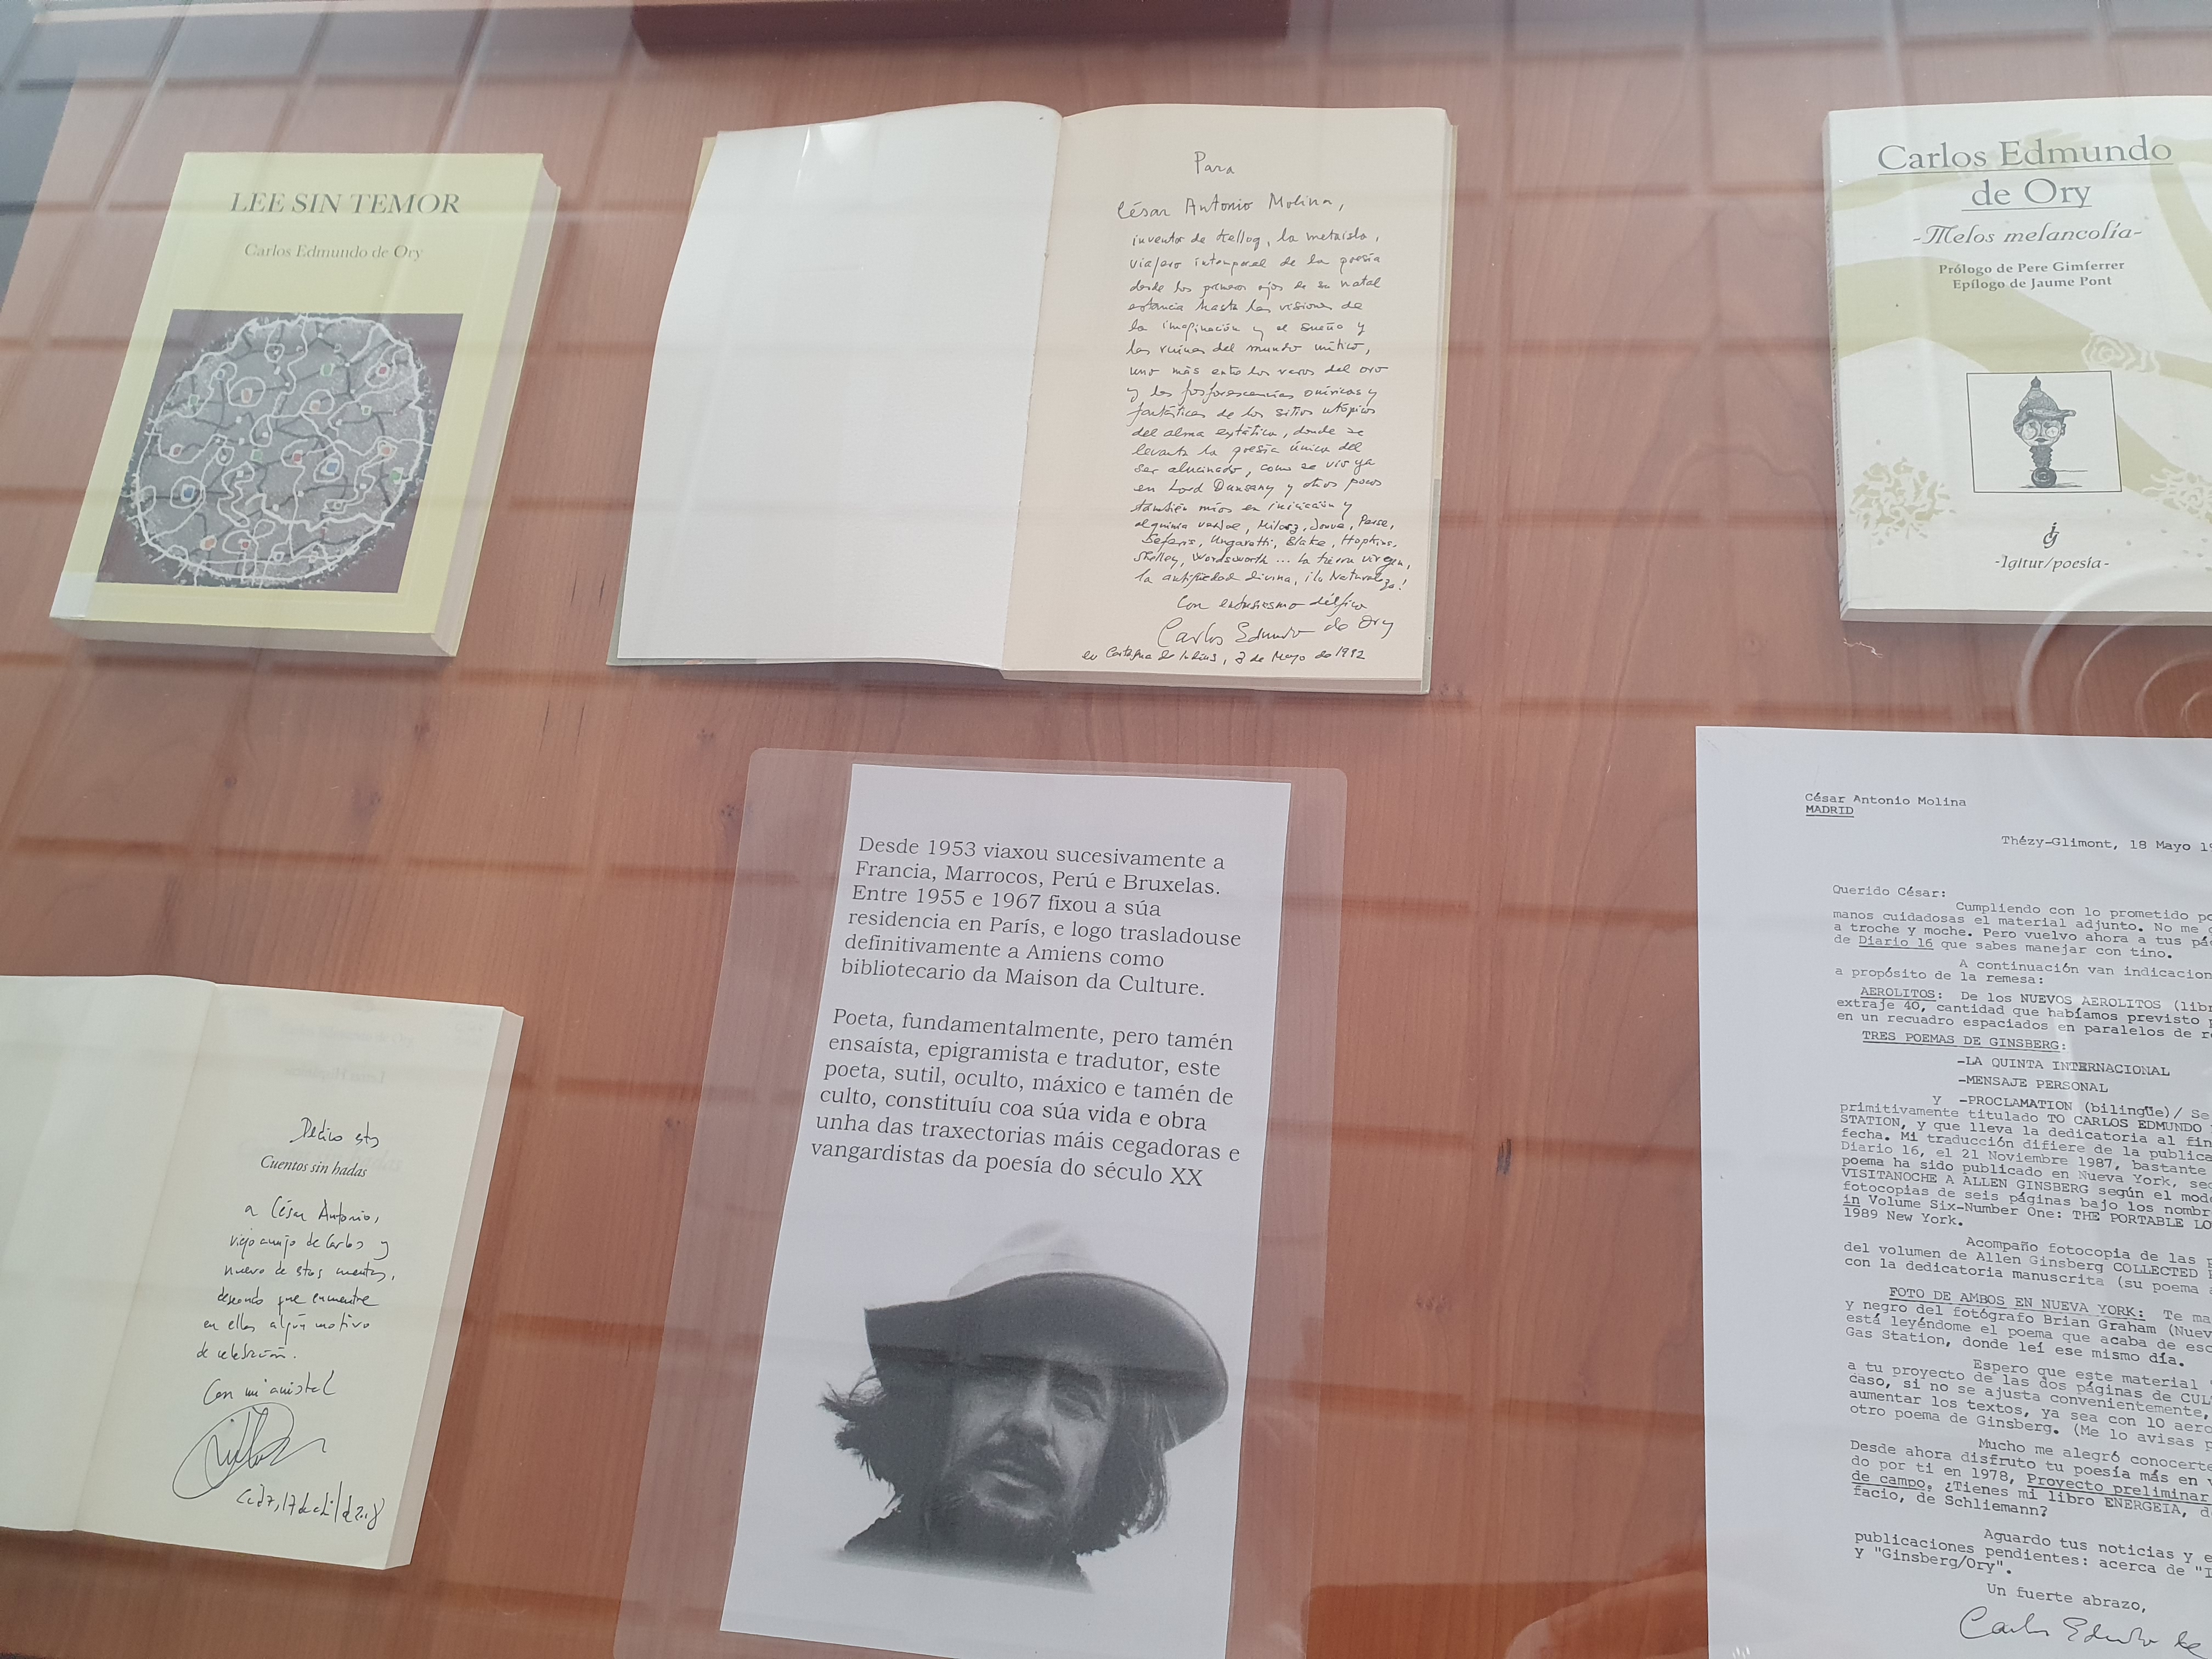 LEE SIN TEMOR
Carlos Edmundo de Ory
Para
César Antonio Molina,
inventor de la metaisla,
viajero intemporal de la poesía
desde los primeros ojos de su natal
estancia hasta las visiones de
la imaginación y el sueño y
las ruinas del mundo mítico,
uno más entre los vasos del oro
y las fosforescencias oníricas y
fantásticas de los sitios utópicos
del alma extática, donde se
levanta la poesía única del
ser alucinado, como se vio ya
en Lord Dunsany y otros pocos
también míos en iniciación y
alquimia verbal, Milosz, Jouve, Perse,
Seferis, Ungaretti, Blake, Hopkins,
Shelley, Wordsworth ... la tierra virgen,
la antigüedad divina, ¡la Naturaleza!
Con entusiasmo délfico
Carlos Edmundo de Ory
en Cartagena de Indias, de Mayo de 1992
Carlos Edmundo
de Ory
-Melos melancolía-
Prólogo de Pere Gimferrer
Epílogo de Jaume Pont
-Igitur/poesía-
Dedico estos
Cuentos sin hadas
a César Antonio,
viejo amigo de Carlos y
nuevo de estos cuentos,
deseando que encuentre
en ellos algún motivo
de celebración.
Con mi amistad
Desde 1953 viaxou sucesivamente a
Francia, Marrocos, Perú e Bruxelas.
Entre 1955 e 1967 fixou a súa
residencia en París, e logo trasladouse
definitivamente a Amiens como
bibliotecario da Maison da Culture.
Poeta, fundamentalmente, pero tamén
ensaísta, epigramista e tradutor, este
poeta, sutil, oculto, máxico e tamén de
culto, constituíu coa súa vida e obra
unha das traxectorias máis cegadoras e
vangardistas da poesía do século XX
César Antonio Molina
MADRID
Thézy-Glimont, 18 Mayo
Querido César:
Cumpliendo con lo prometido
manos cuidadosas el material adjunto. No me
a troche y moche. Pero vuelvo ahora a tus
de Diario 16 que sabes manejar con tino.
A continuación van
a propósito de la remesa:
AEROLITOS: De los NUEVOS AEROLITOS
extraje 40, cantidad que habíamos previsto
en un recuadro espaciados en paralelos de
TRES POEMAS DE GINSBERG:
-LA QUINTA INTERNACIONAL
-MENSAJE PERSONAL
y -PROCLAMATION (bilingüe)/ Se
primitivamente titulado TO CARLOS EDMUNDO
STATION, y que lleva la dedicatoria al
fecha. Mi traducción difiere de la
Diario 16, el 21 Noviembre 1987, bastante
poema ha sido publicado en Nueva York,
VISITANOCHE A ALLEN GINSBERG según el
fotocopias de seis páginas bajo los
in Volume Six-Number One: THE PORTABLE
1989 New York.
Acompaño fotocopia de las
del volumen de Allen Ginsberg COLLECTED
con la dedicatoria manuscrita (su poema
FOTO DE AMBOS EN NUEVA YORK: Te
y negro del fotógrafo Brian Graham
está leyéndome el poema que acaba de
Gas Station, donde leí ese mismo día.
Espero que este material
a tu proyecto de las dos páginas de
caso, si no se ajusta convenientemente,
aumentar los textos, ya sea con 10
otro poema de Ginsberg. (Me lo avisas
Mucho me alegró
Desde ahora disfruto tu poesía más en
do por ti en 1978, Proyecto preliminar
de campo. ¿Tienes mi libro ENERGEIA,
facio, de Schliemann?
Aguardo tus noticias y
publicaciones pendientes: acerca de
y "Ginsberg/Ory".
Un fuerte abrazo,
Carlos Edmundo de